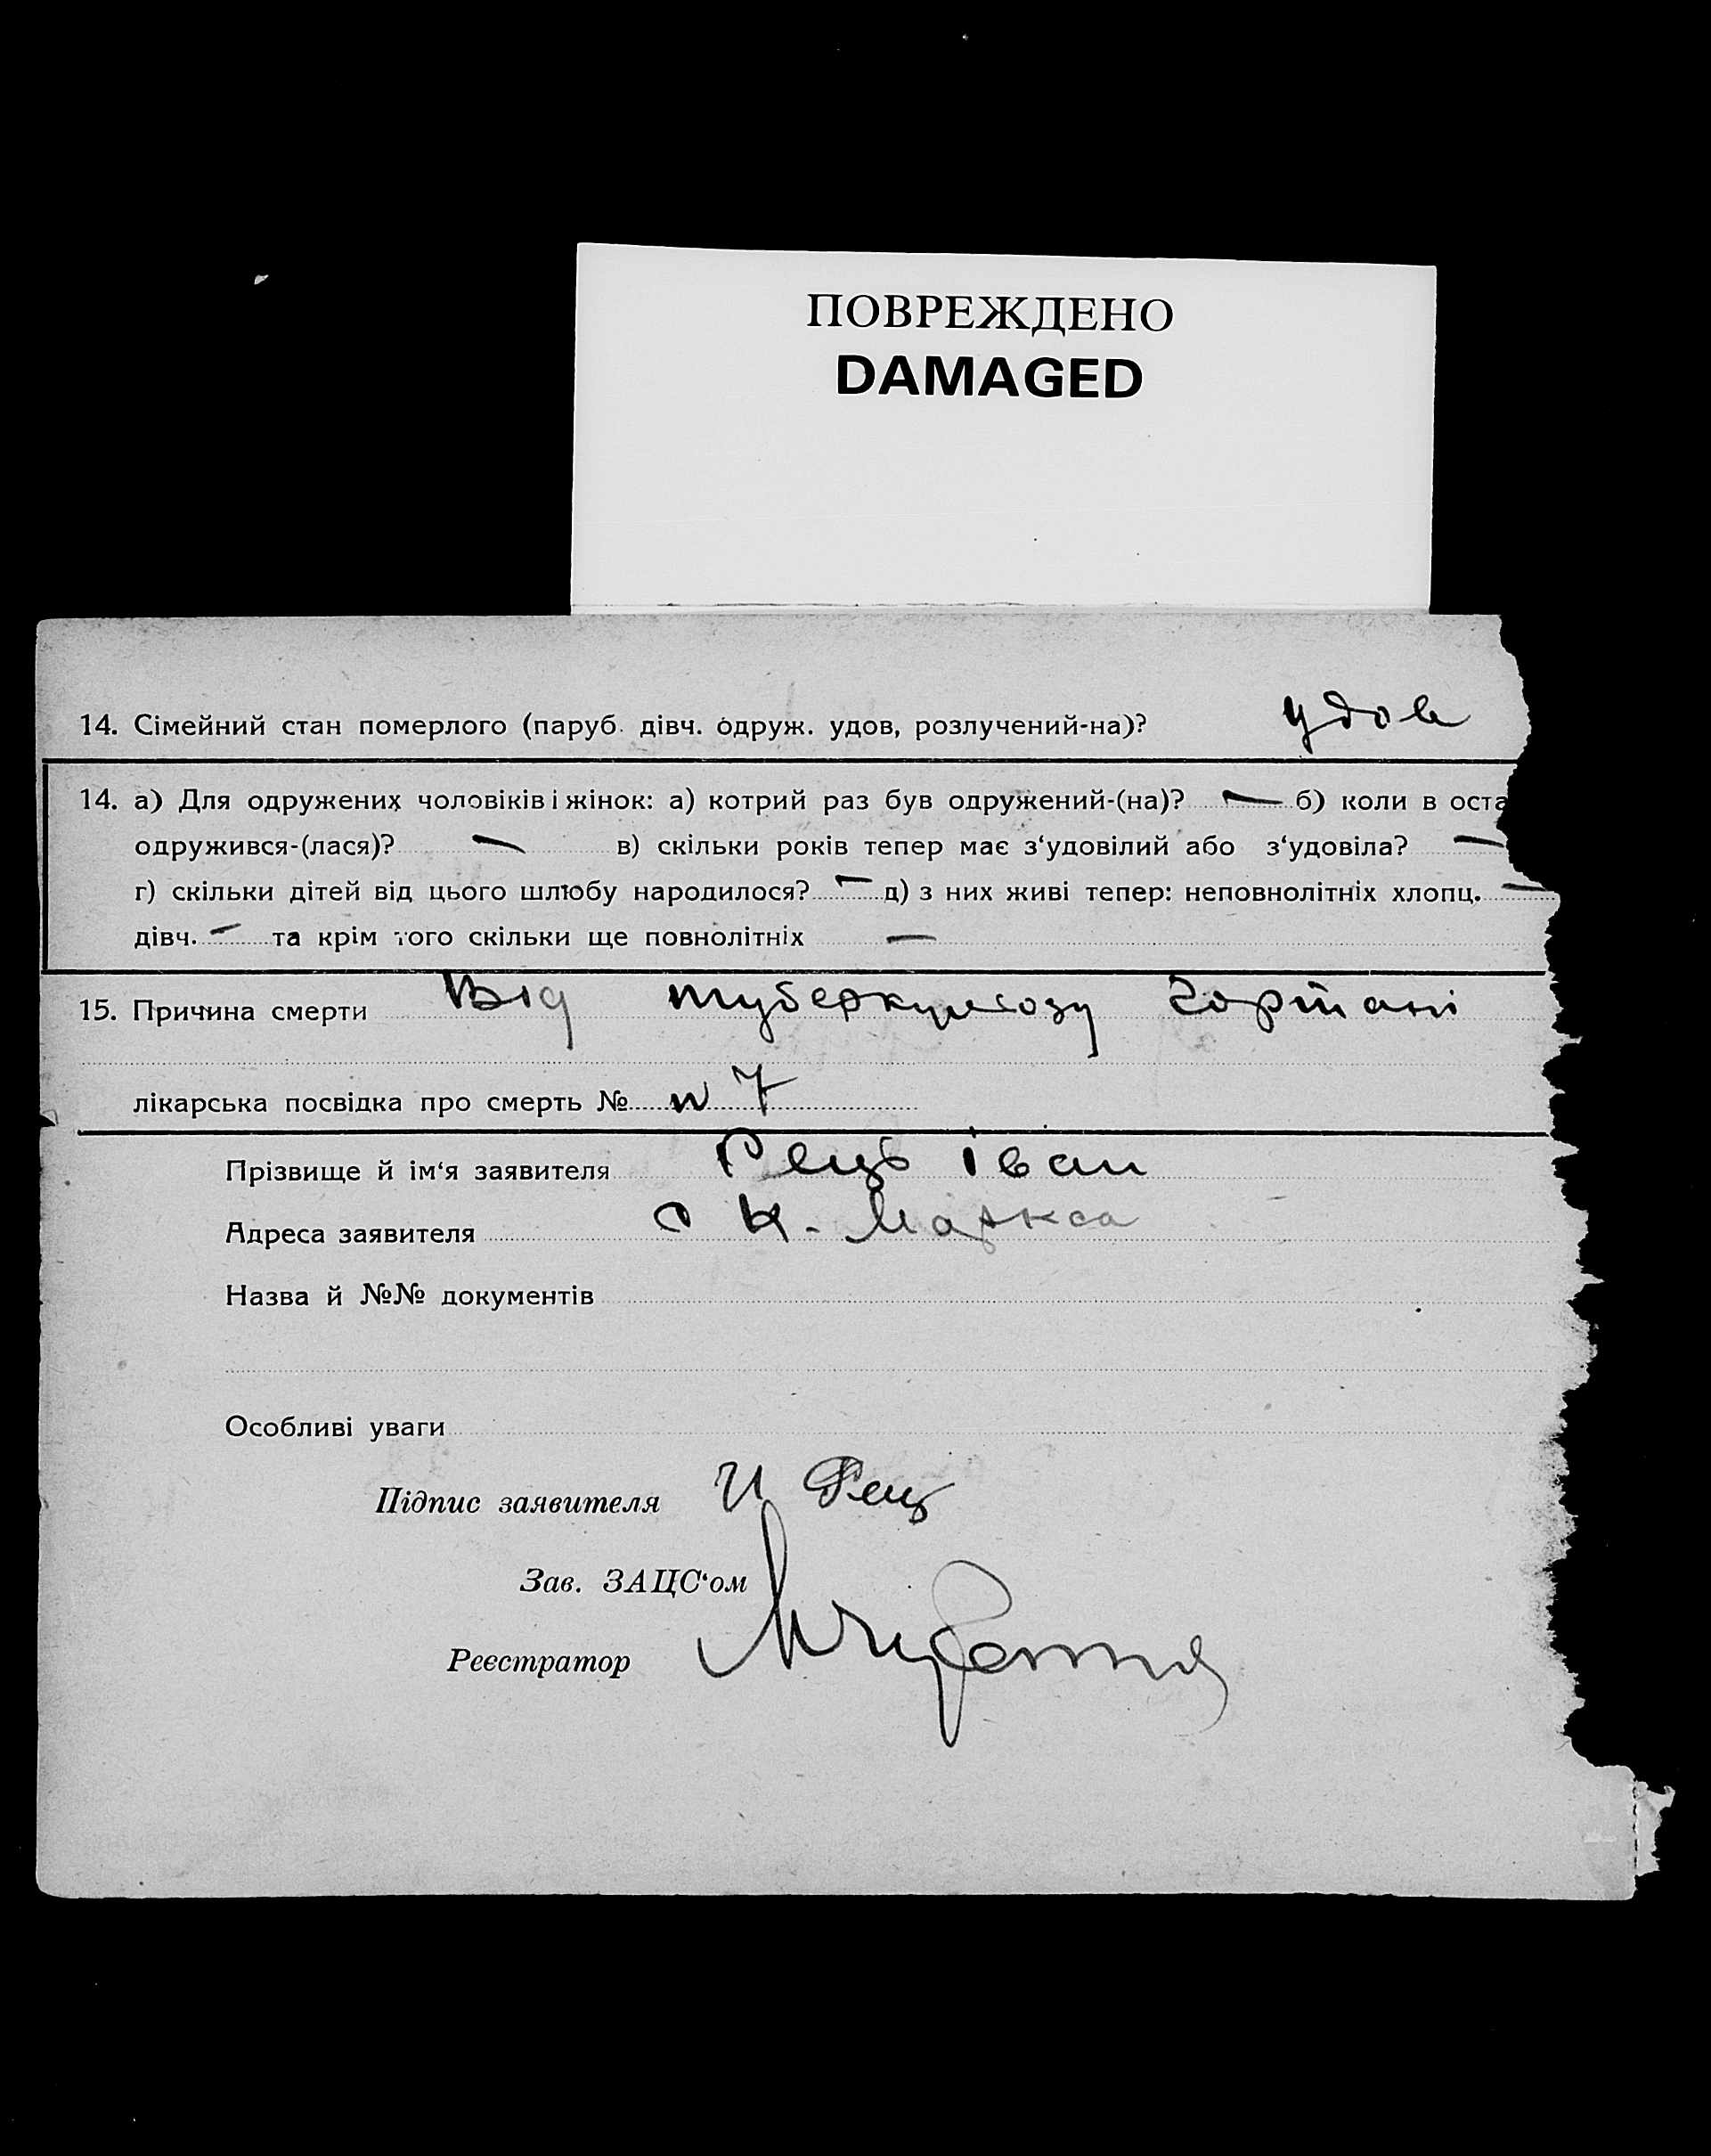 ПОВРЕЖДЕНО
DAMAGED
14. Сімейний стан померлого (паруб. дівч. одруж. удов, розлучений-на)? удов
14. а) Для одружених чоловіків і жінок: а) котрий раз був одружений-(на)? — б) коли в оста
одружився-(лася)? — в) скільки років тепер має з‘удовілий або з‘удовіла? —
г) скільки дітей від цього шлюбу народилося? — д) з них живі тепер: неповнолітніх хлопц. —
дівч. — та крім того скільки ще повнолітніх —
15. Причина смерти Від туберкульозу гортані
лікарська посвідка про смерть № N 7
Прізвище й ім‘я заявителя Рець Іван
Адреса заявителя с К. Маркса
Назва й №№ документів
Особливі уваги
Підпис заявителя И Рец
Зав. ЗАЦС‘ом
Реєстратор